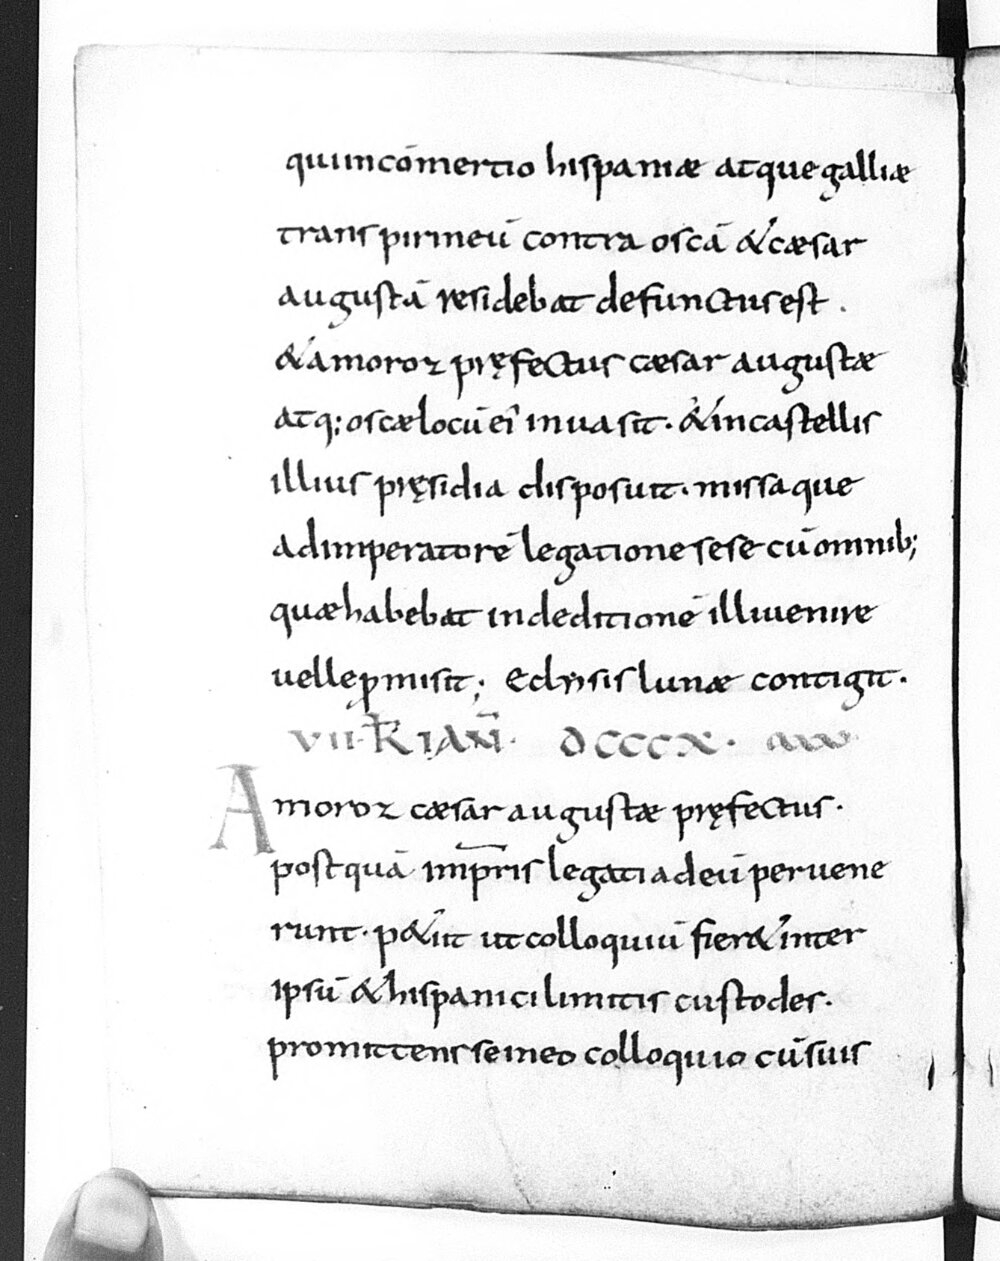 quiincōmertio hispaniæ atque galliæ
trans pirineū contra oscā &cæsar
augustā residebat defunctus est .
&amoroz pręfectus cæsar augustæ
atq; oscæ locū ei' inuasit. &incastellis
illius pręsidia disposuit. missaque
adimperatorē legatione sese cū omnib;
quæ habebat indeditionē illi uenire
uelle ꝓmisit; Eclypsis lunæ contigit.
VII. KL IAN̄. DCCCX.
Amoroz cæsar augustæ pręfectus.
postquā imp̄ris legati adeū peruene
runt. p&iit ut colloquiū fier& inter
ipsū &hispanici limitis custodes.
promittens se ineo colloquio cū suis